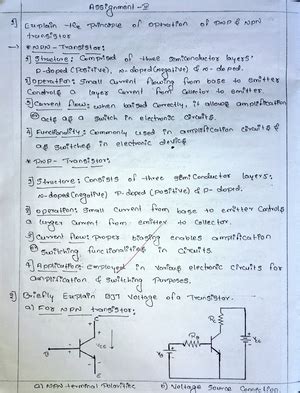 Assignment-2
1) Explain the Principle of operation of PNP & NPN
transistor.
→ * NPN - Transistor:
1) Structure: Comprised of three semiconductor layers:
P-doped (Positive), N-doped (negative) & n-doped.
2) operation: Small current flowing from base to emitter
Controls a larger current from collector to emitter.
3) Current flow: when baised correctly, it allows amplification
acts as a switch in electronic circuits.
4) Functionality: Commonly used in amplification circuits &
as switches in electronic device
* PNP - Transistor:
1) Structure: Consists of three semiconductor layers:
n-doped (negative) P-doped (Positive) & P-doped.
2) operation: Small current from base to emitter controls
a larger current from emitter to collector.
3) Current flow: Proper biasing enables amplification
switching functionalities in circuits.
4) Application: Employed in various electronic circuits for
amplification & switching Purposes.
2) Briefly Explain BJT Voltage of a Transistor.
a) For NPN transistor:
C
B
E
RB
RC
VB
VCC
a) NPN-terminal Polarities
b) Voltage Source Connection.